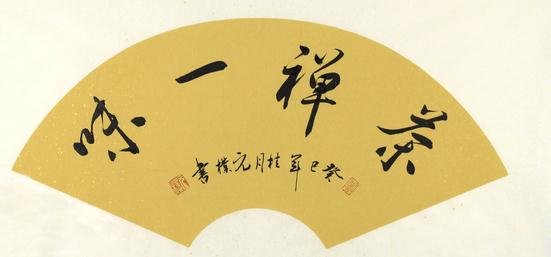 茶禅一味
癸巳年桂月元烁书